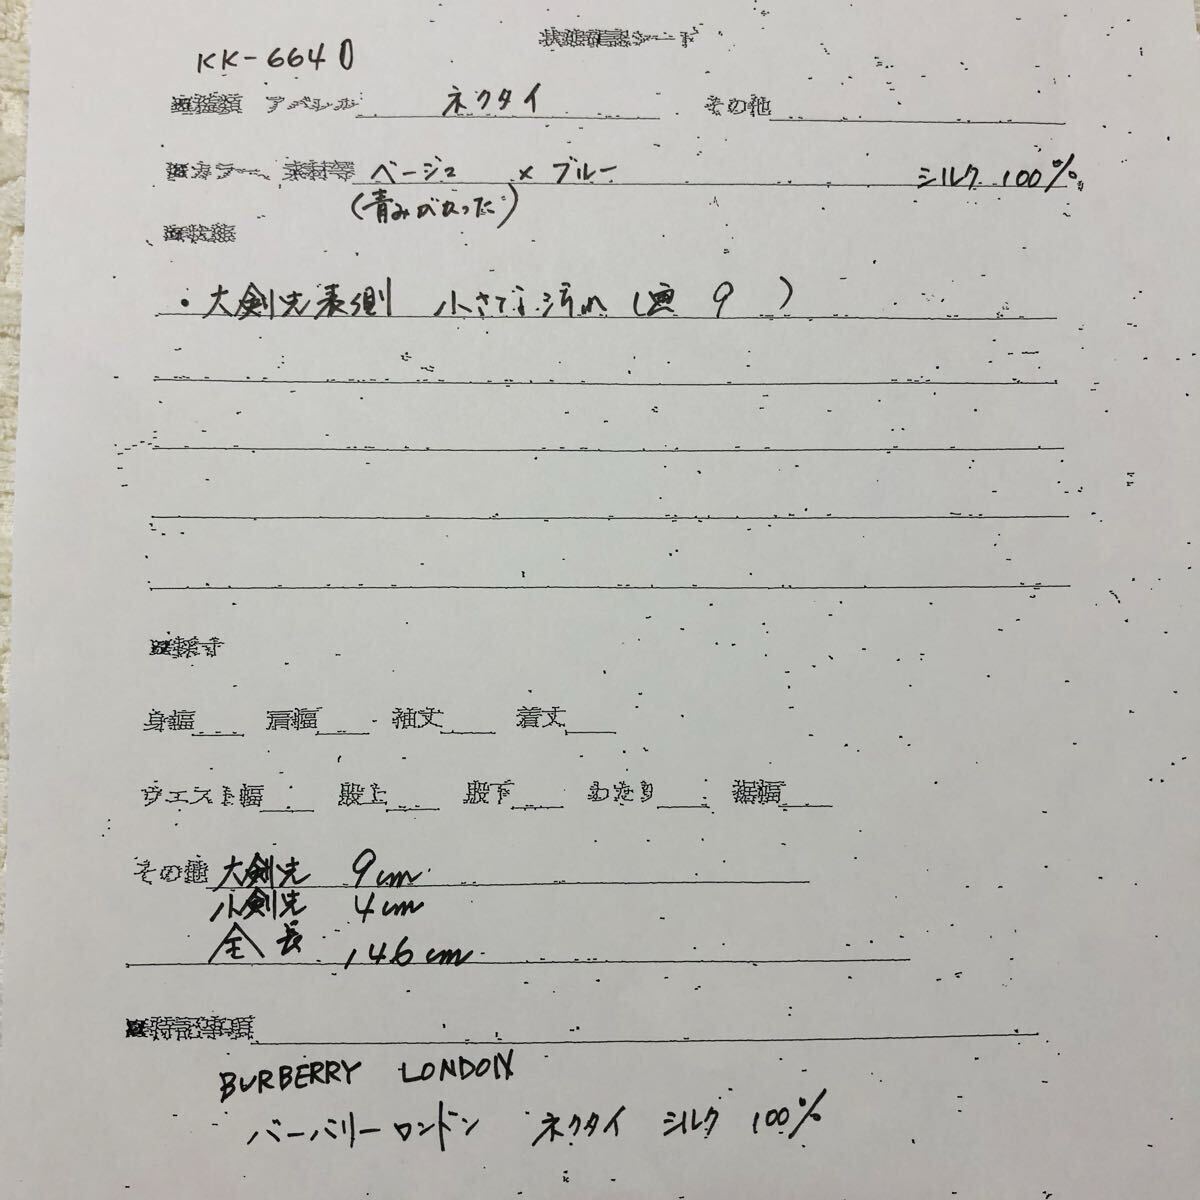 状態確認シート
KK-6640
■種類 アパレル ネクタイ その他
■カラー、素材等 ベージュ × ブルー シルク 100%
(青みがかった)
■状態
・大剣先表側 小さな汚れ (画 9 )
■採寸
身幅 肩幅 袖丈 着丈
ウエスト幅 股上 股下 わたり 裾幅
その他 大剣先 9cm
小剣先 4cm
全長 146cm
■特記事項
BURBERRY LONDON
バーバリーロンドン ネクタイ シルク 100%